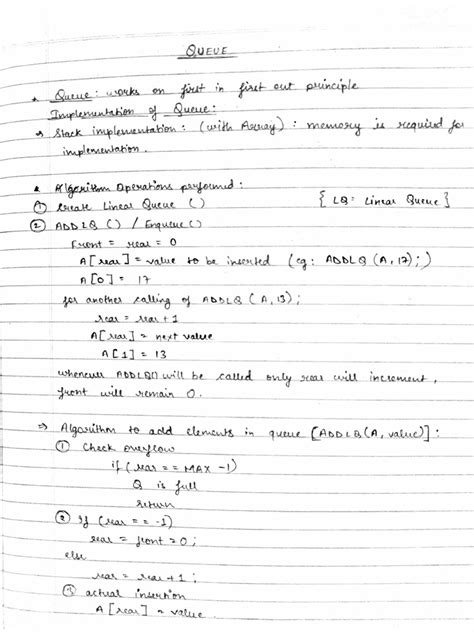 QUEUE
* Queue: works on first in first out principle
Implementation of Queue:
→ Stack implementation: (with Array): memory is required for
implementation.
* Algorithm Operations performed:
① Create Linear Queue ( ) { LQ: Linear Queue }
② ADDLQ ( ) / Enqueue ( )
Front = rear = 0
A[rear] = value to be inserted (eg: ADDLQ (A, 17);)
A[0] = 17
for another calling of ADDLQ (A, 13);
rear = rear + 1
A[rear] = next value
A[1] = 13
whenever ADDLQ() will be called only rear will increment,
front will remain 0.
⇒ Algorithm to add elements in queue [ADDLQ(A, value)]:
① Check overflow
if (rear == MAX -1)
Q is full
return
② If (rear == -1)
rear = front = 0;
else
rear = rear + 1;
③ actual insertion
A[rear] = value